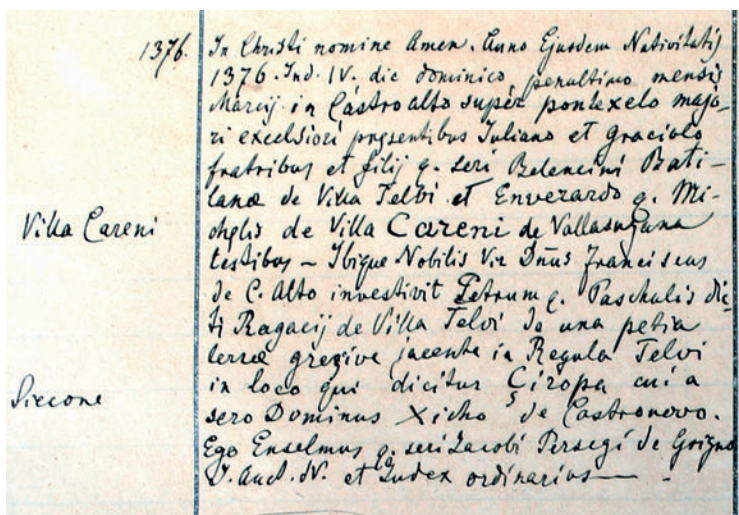 1376. In Christi nomine Amen. Anno Ejusdem Nativitatis
1376. Ind. IV. die dominico, penultimo mensis
Marcij in Castroalto super pontexelo majo-
ri excelsiori presentibus Iuliano et Graciolo
fratribus et filij q. seri Belencini Bati-
lanæ de Villa Telvi et Enverardo q. Mi-
Villa Careni
chelis de Villa Careni de Vallasugana
testibus – Ibique Nobilis Vir Dnus Franciscus
de C. Alto investivit Petrum q. Paschalis dic-
ti Ragacij de Villa Telvi de una petia
terræ grezive jacente in Regula Telvi
Siccone
in loco qui dicitur Çiropa cui a
sero Dominus Xicho de Castronovo.
Ego Enselmus q. seri Iacobi Persegi de Grigno
I. Auct. N. et Iudex ordinarius —